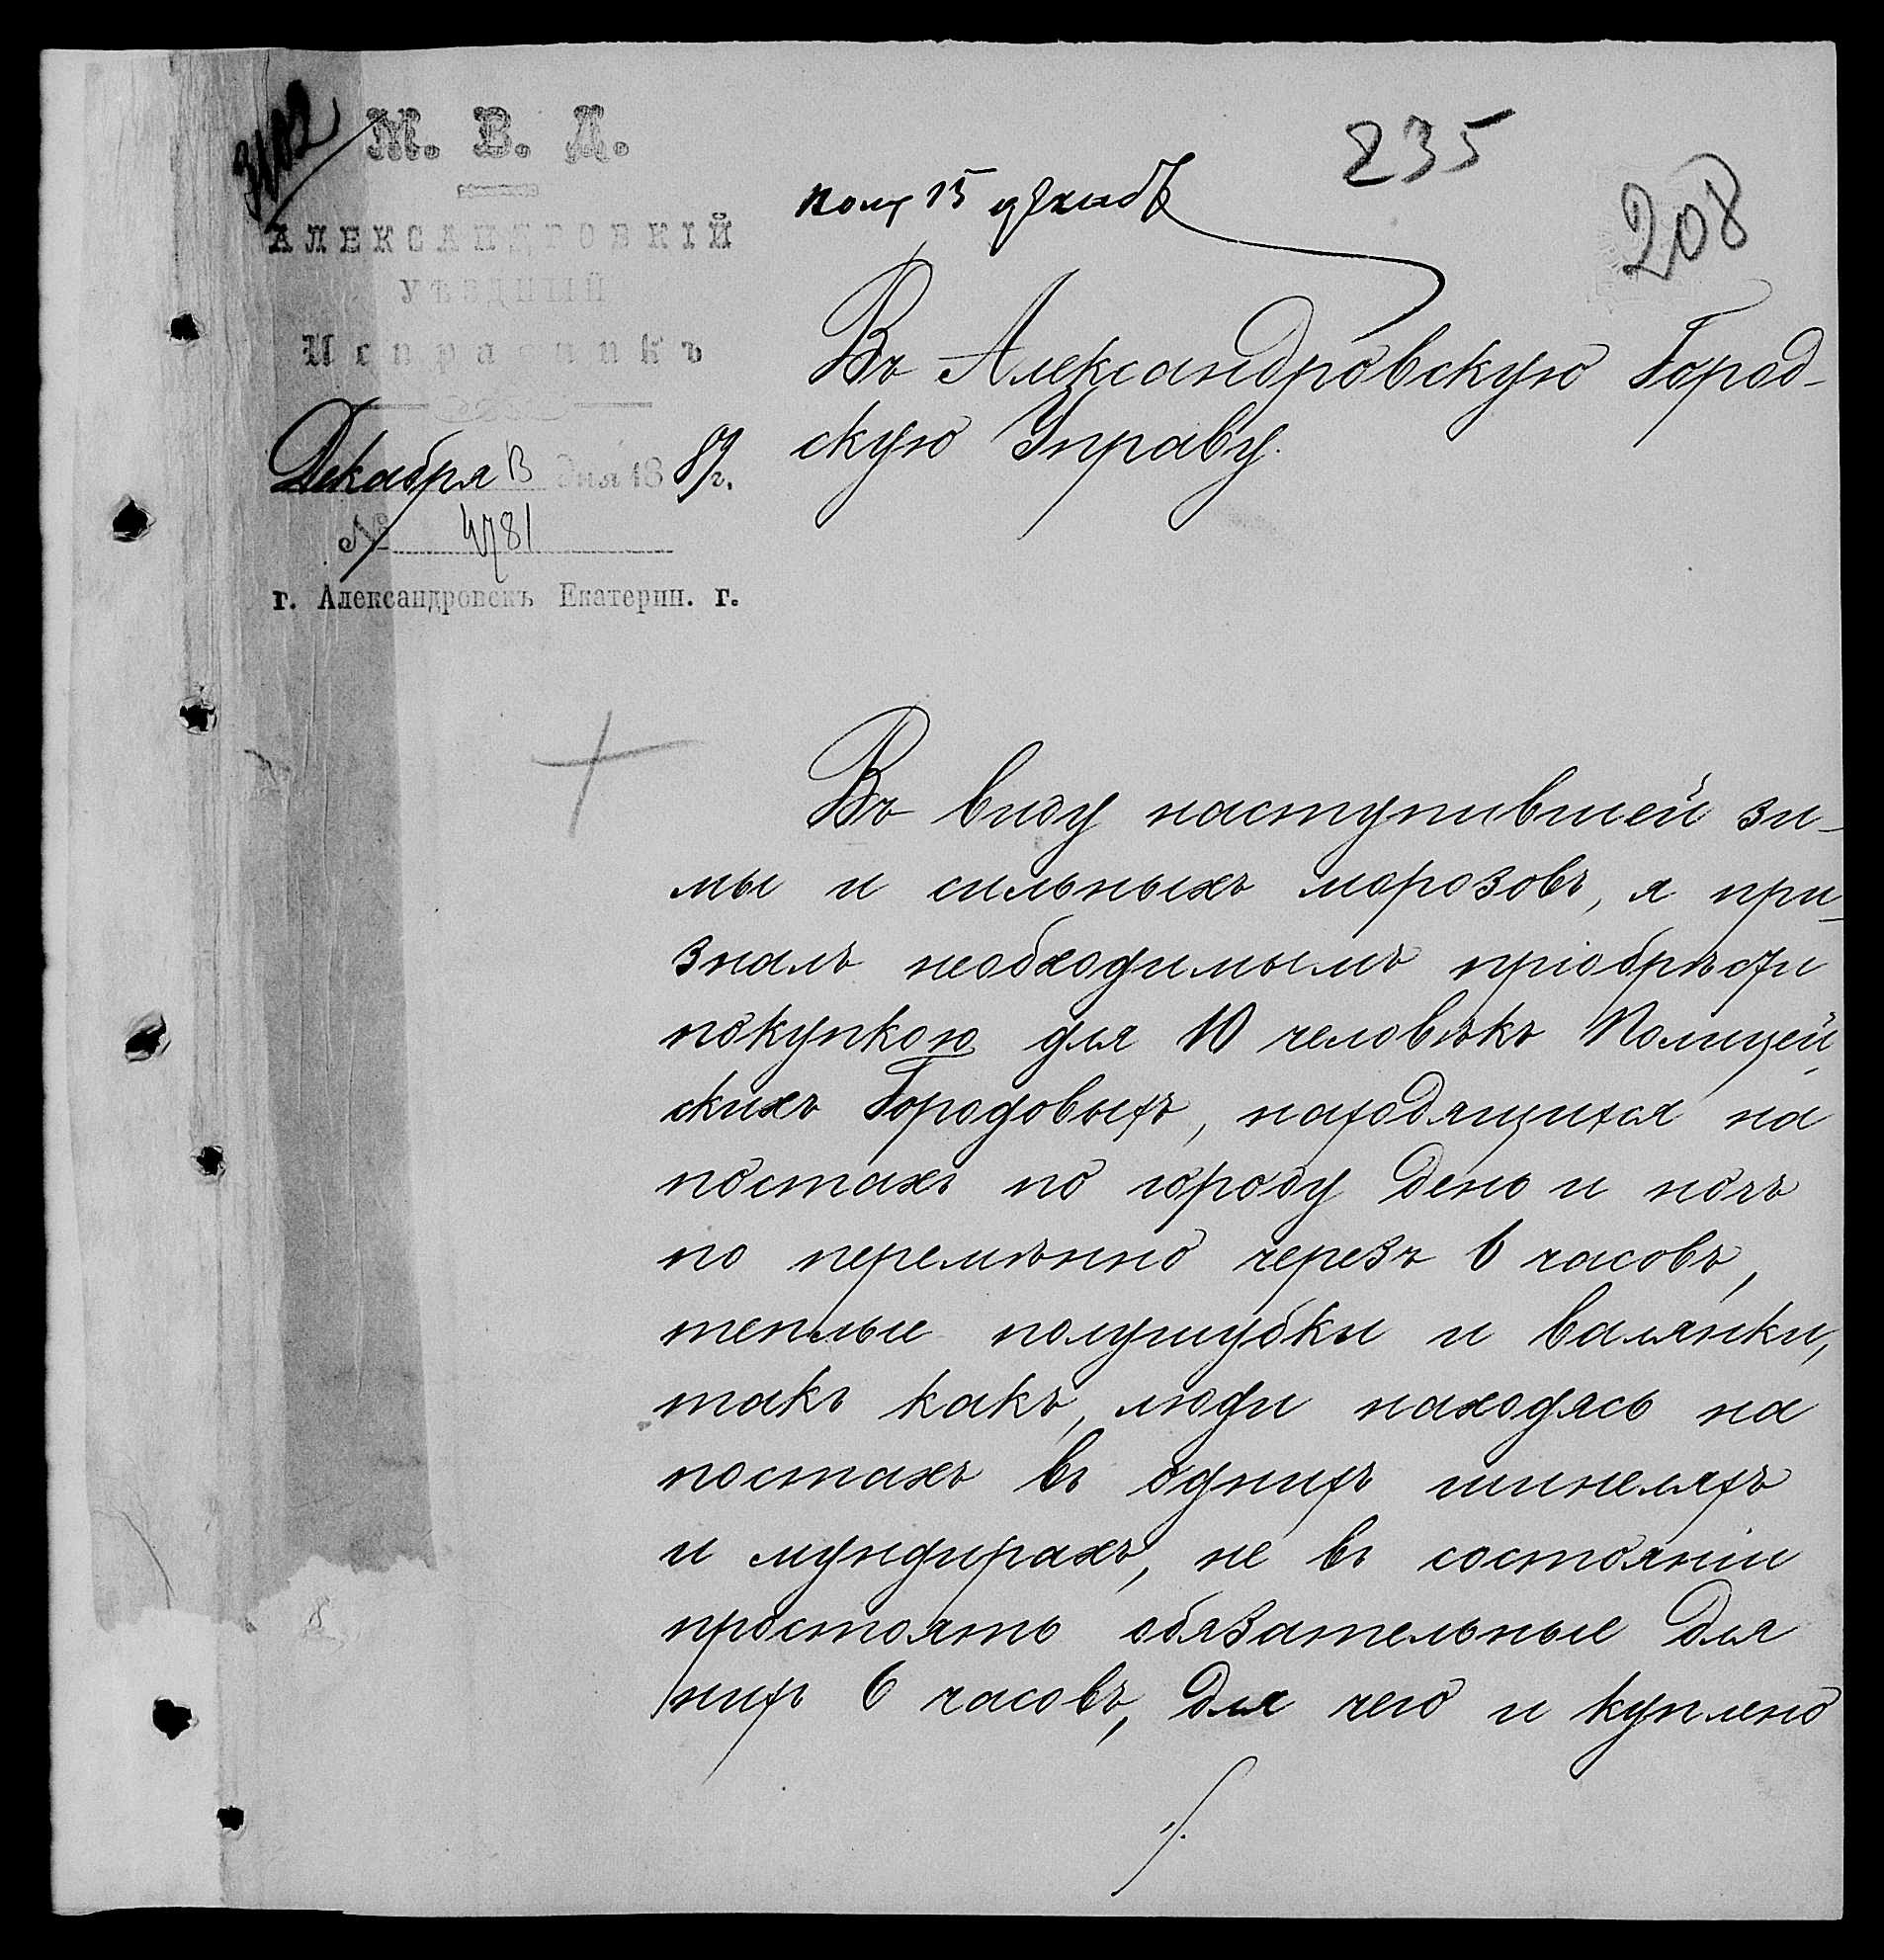 3102
М. В. Д.
АЛЕКСАНДРОВСКІЙ
УѢЗДНЫЙ
Исправникъ
Декабря 13 дня 1889 г.
№ 4781
г. Александровскъ Екатерин. г.
235
208
пол 15 декаб
Въ Александровскую Город-
скую Управу.
Въ виду наступившей зи-
мы и сильныхъ морозовъ, я при-
зналъ необходимымъ пріобрѣсти
покупкою для 10 человѣкъ Полицей-
скихъ Городовыхъ, находящихся на
постахъ по городу день и ночь
по перемѣнно черезъ 6 часовъ,
теплые полушубки и валянки,
такъ какъ, люди находясь на
постахъ въ однихъ шинеляхъ
и мундирахъ, не въ состояніи
простоять обязательные для
нихъ 6 часовъ, для чего и куплено
./.